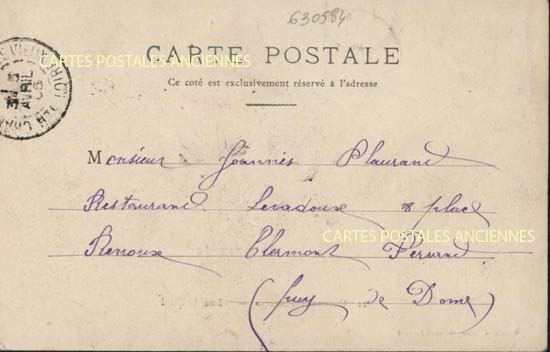 630584
CARTE POSTALE
Ce coté est exclusivement réservé à l'adresse
CARTES POSTALES ANCIENNES
AVRIL
Monsieur Joannès Plaurand
Restaurand Levadoux 8 place
CARTES POSTALES ANCIENNES
Renoux Clermont Ferrand
(puy de Dome)